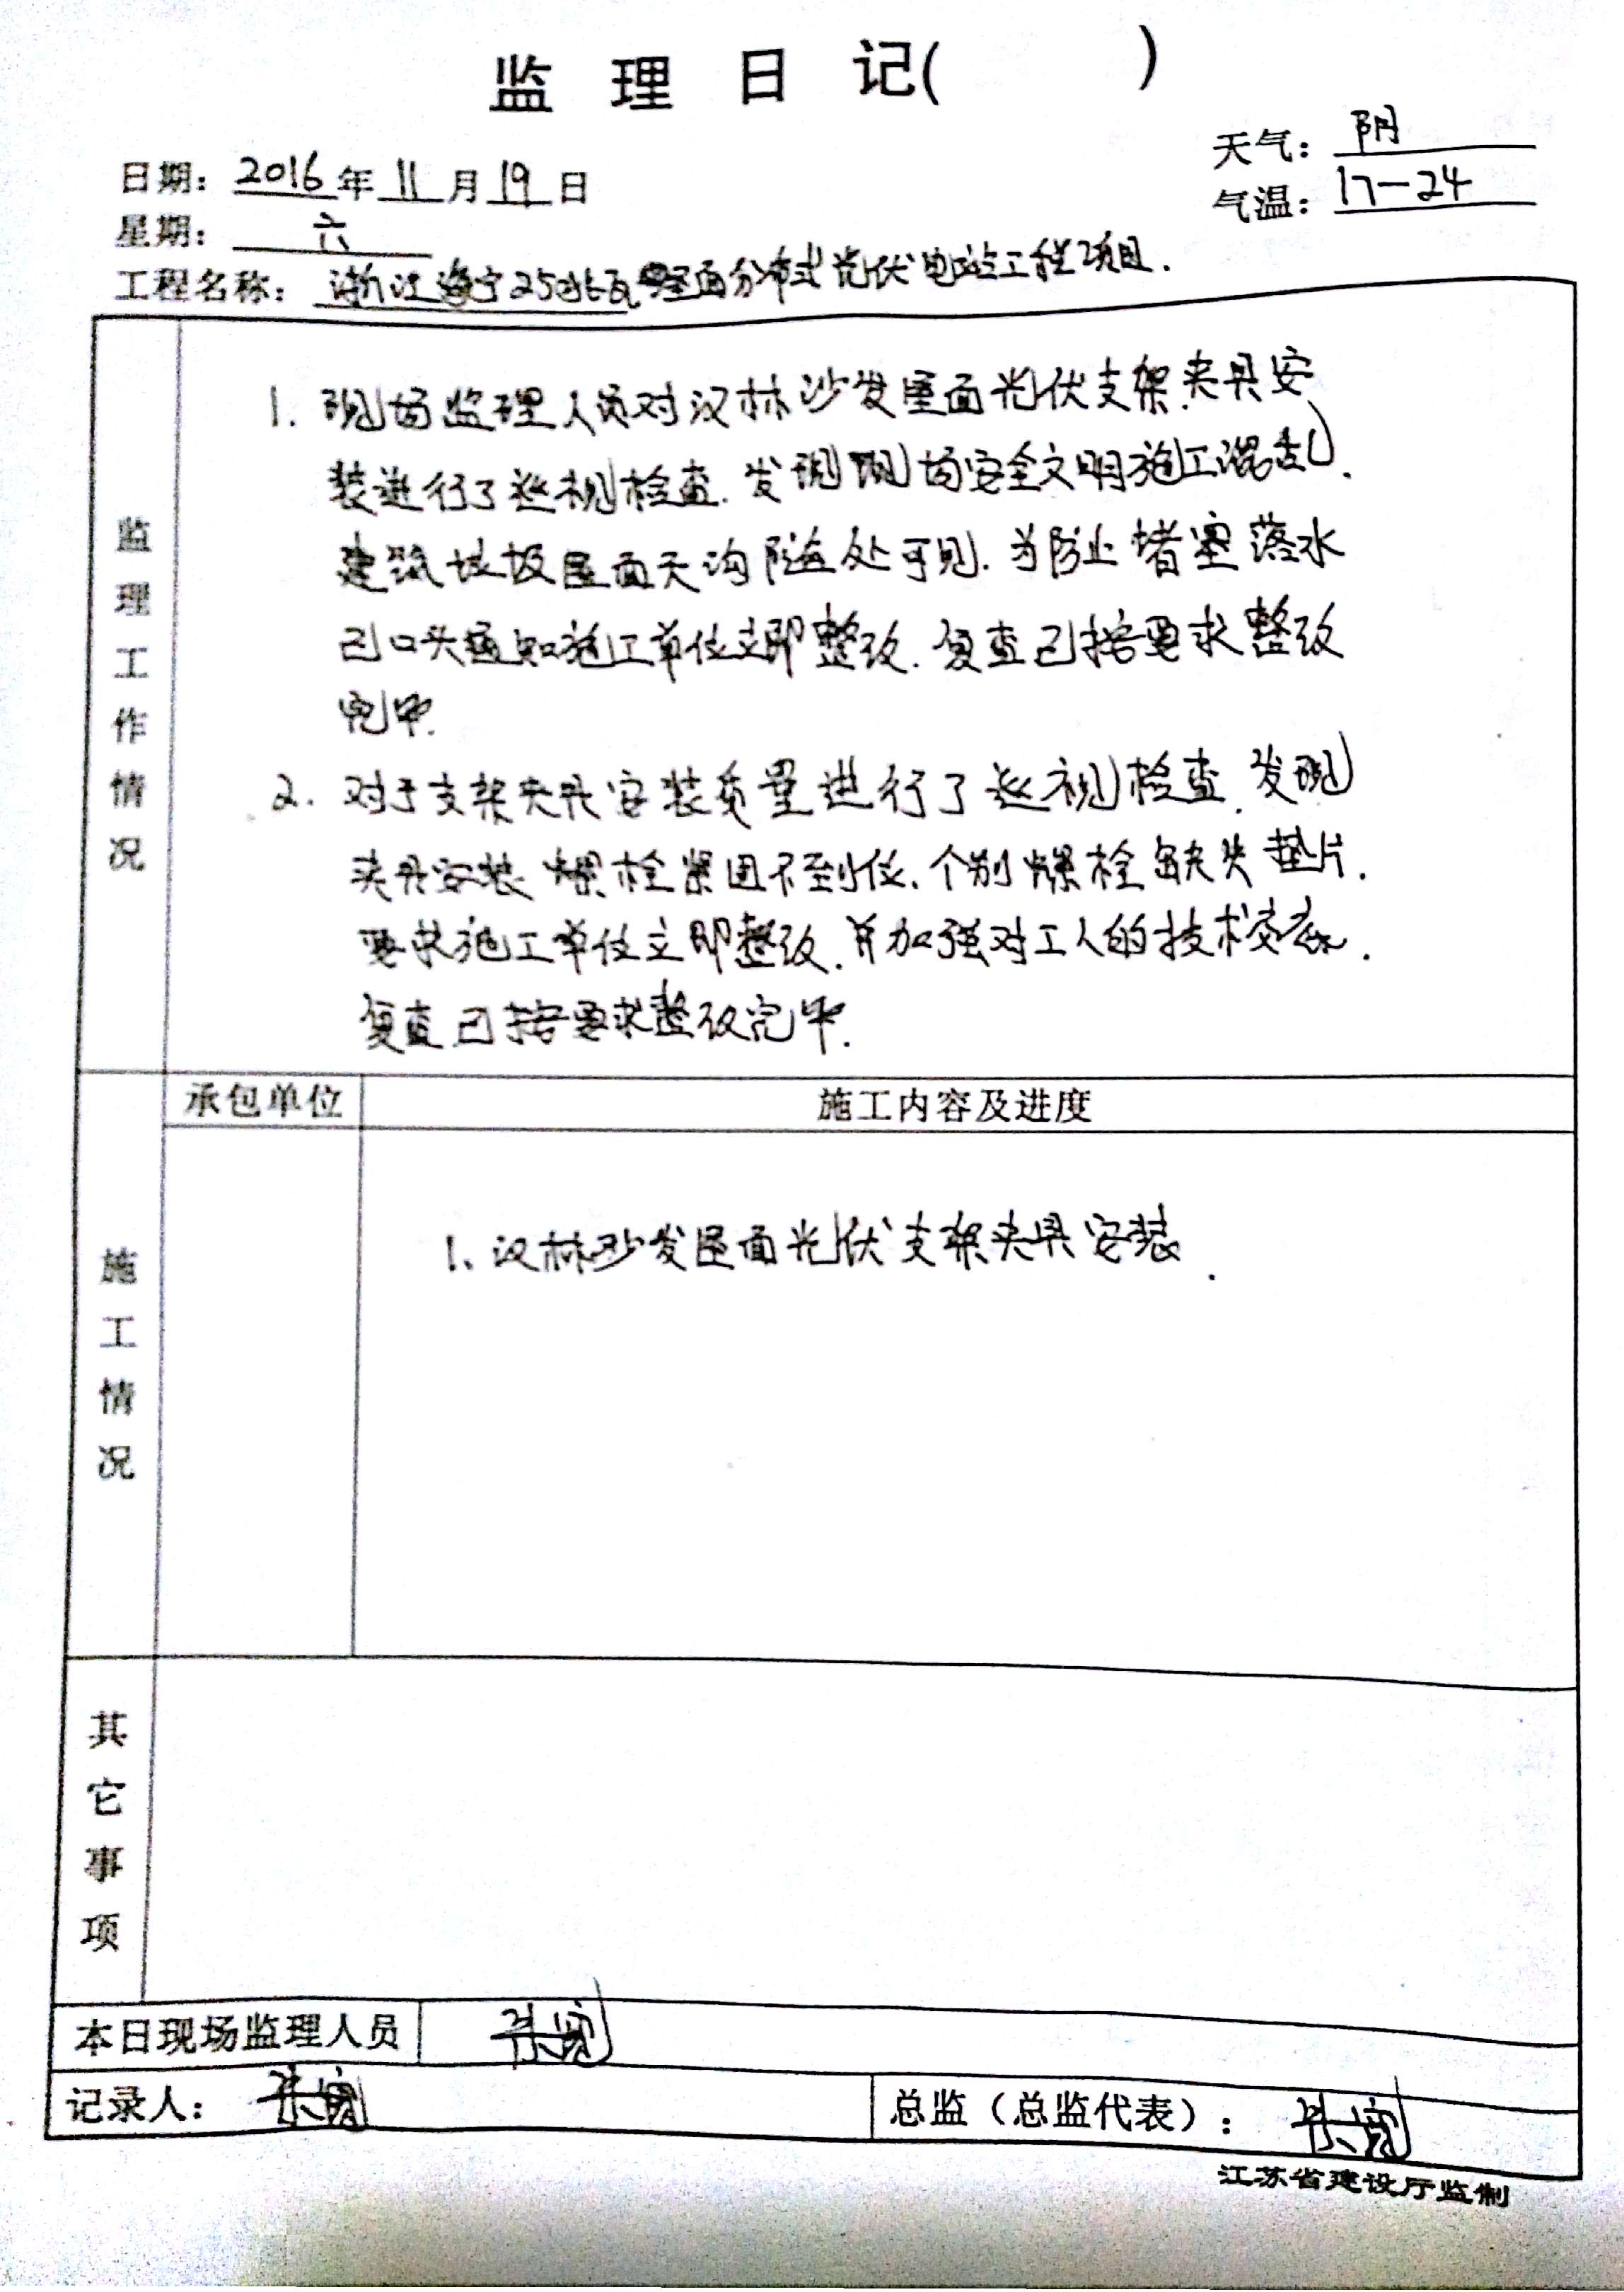 监 理 日 记(      )
天气：阴
日期：2016年11月19日
气温：17-24
星期：六
工程名称：浙江海宁25兆瓦屋面分布式光伏电站工程项目.
监理工作情况
1. 现场监理人员对汉林沙发屋面光伏支架夹具安
装进行了巡视检查.发现现场安全文明施工混乱.
建筑垃圾屋面天沟随处可见.为防止堵塞落水
已口头通知施工单位立即整改.复查已按要求整改
完毕.
2. 对于支架夹具安装质量进行了巡视检查.发现
夹具安装螺栓紧固不到位.个别螺栓缺失垫片.
要求施工单位立即整改.并加强对工人的技术交底.
复查已按要求整改完毕.
施工情况
承包单位 施工内容及进度
1、汉林沙发屋面光伏支架夹具安装.
其它事项
本日现场监理人员
记录人： 总监（总监代表）：
江苏省建设厅监制